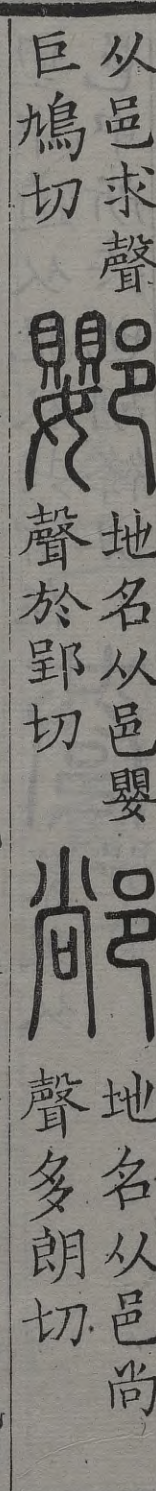 从邑求聲
巨鳩切
䣐
地名从邑嬰
聲於郢切
鄌
地名从邑尚
聲多朗切